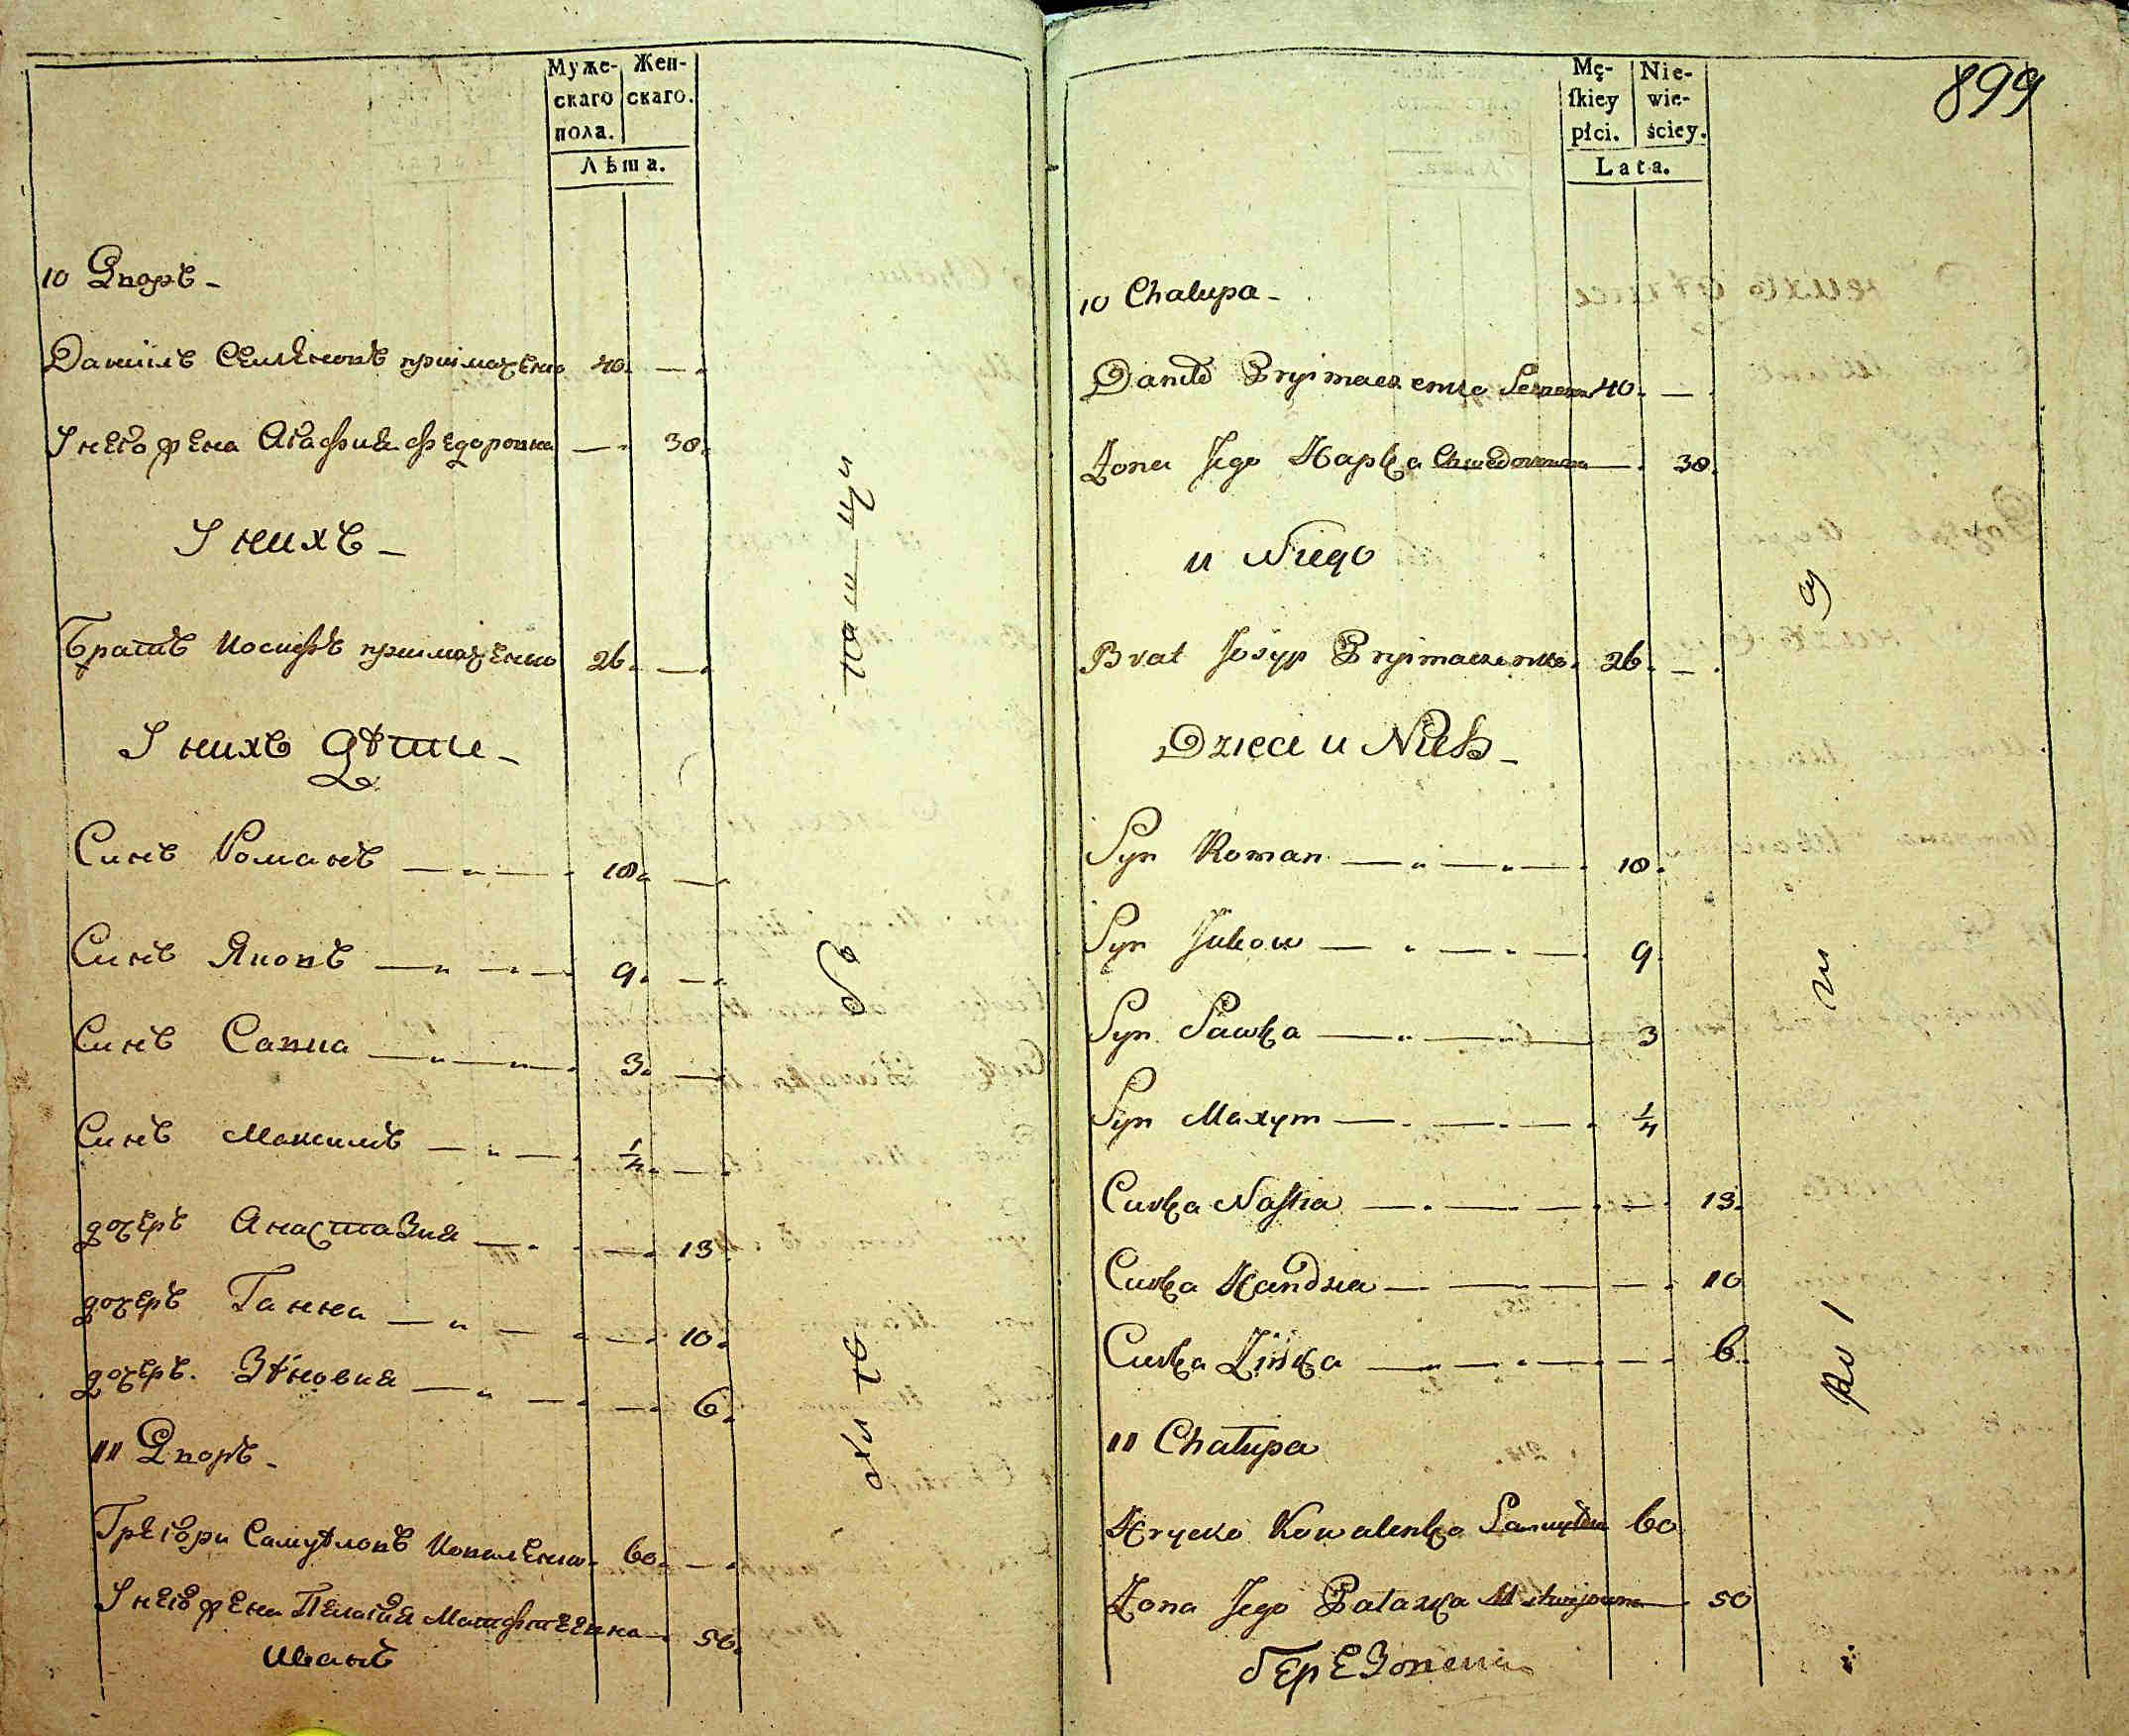 Муже-
скаго
пола.
Жен-
скаго.
Лѣта.
10 Дворъ -
Даниилъ Семеновъ приймаченко 40. — .
У него жена Агафия Федоровна — . 38.
У нихъ -
Братъ Иосифъ приймаченко 26. — .
У нихъ дѣти -
Синъ Романъ — „ — . 18. — .
Синъ Яковъ — „ — „ — . 9. — .
Синъ Савка — „ — „ — . 3. — .
Синъ Максимъ — „ — . 1/4. — .
дочеръ Анастазия — . — . 13.
дочеръ Ганна — „ — „ — . 10.
дочеръ. Зѣновия — „ — . — . 6.
11 Дворъ -
Грегори Самуѣловъ Коваленко . 60. — .
У него жена Пелагия Матфѣевна — . 50.
Иванъ
899
Mę-
skiey
płci.
Nie-
wie-
ściey.
Lata.
10 Chalupa -
Daniło Pryimaczenko Semenow 40. — .
Żona Jego Hapka Chwedorowna — . 38.
u Niego
Brat Josyp Pryimaczenko . 26. — .
Dzieci u Nich -
Syn Roman — „ — „ — . 18.
Syn Jakow — . — . — . 9.
Syn Sawka — „ — . — 3
Syn Maxym — . — . — . 1/4
Curka Nastia — . — . — . — . 13.
Curka Handzia — . — . — . 10
Curka Zinka — „ — . — . — 6.
11 Chałupa
Hrycko Kowalenko Samuyłow 60
Żona Jego Pałazka Matwijowna — 50
березовенко